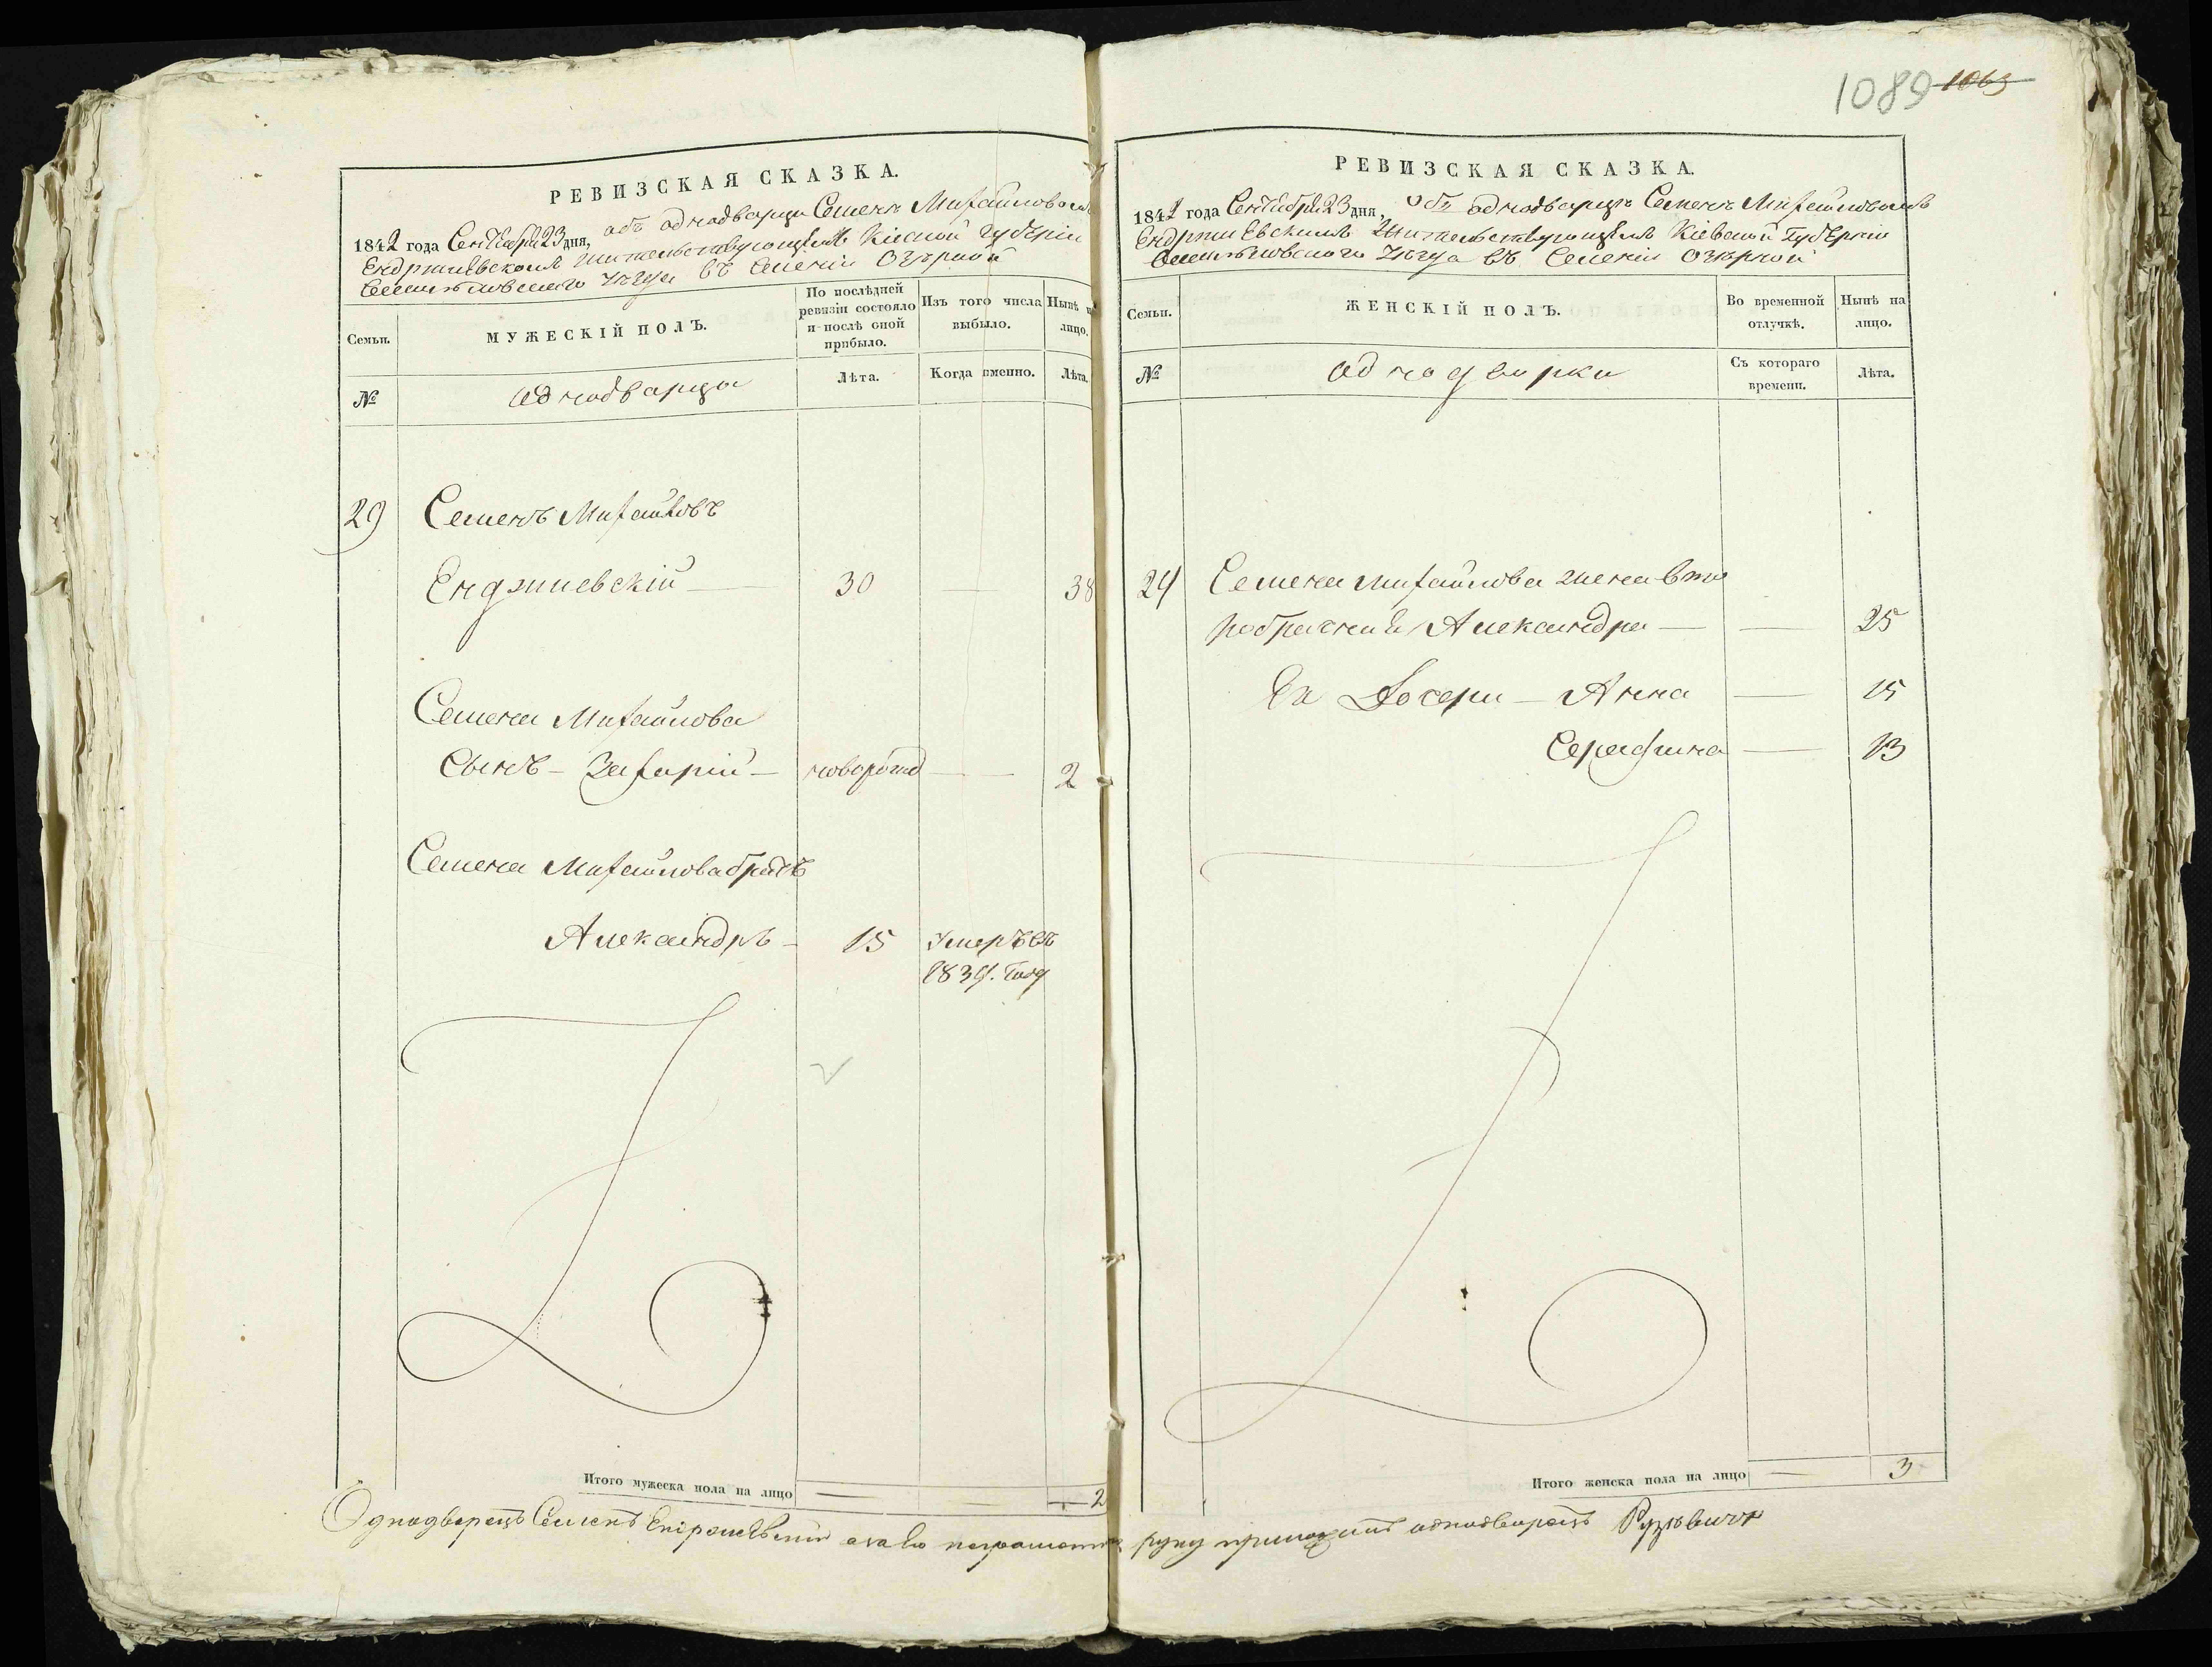 1089 1063
РЕВИЗСКАЯ СКАЗКА.
1842 года Сентября 23 дня, объ однодварци Семенъ Михайловомъ
Ендржіевскомъ жительствующемъ Кіевской Губерніи
уезда въ селеніи Озѣрной
Семьи.
МУЖЕСКІЙ ПОЛЪ.
По послѣдней
ревизіи состояло
и послѣ оной
прибыло.
Изъ того числа
выбыло.
Нынѣ н
лицо.
№
однодварци
Лѣта.
Когда именно.
Лѣта.
29 Семенъ Михайловъ
Ендржиевскій — 30 — 38
Семена Михайлова
Сынъ – Захарій – новорожд — 2
Семена Михайлова братъ
Александръ – 15 Умеръ въ
1839. году
Итого мужеска пола на лицо — — 2
РЕВИЗСКАЯ СКАЗКА.
1842 года Сентября 23 дня, объ однодварцѣ Семенѣ Михайловомъ
Ендржиевскимъ Жительствующемъ Кіевской Губерніи
уезда въ Селеніи Озѣрной
Семьи.
ЖЕНСКІЙ ПОЛЪ.
Во временной
отлучкѣ.
Нынѣ на
лицо.
№
однодворки
Съ котораго
времени.
Лѣта.
29 Семена михайлова жена вто
робрачная Александра — — 25
Ея Дочери – Анна — 15
Серафина — 13
Итого женска пола на лицо — 3
Однодворецъ Семенъ а за его неграмотн руку приложилъ однодворецъ